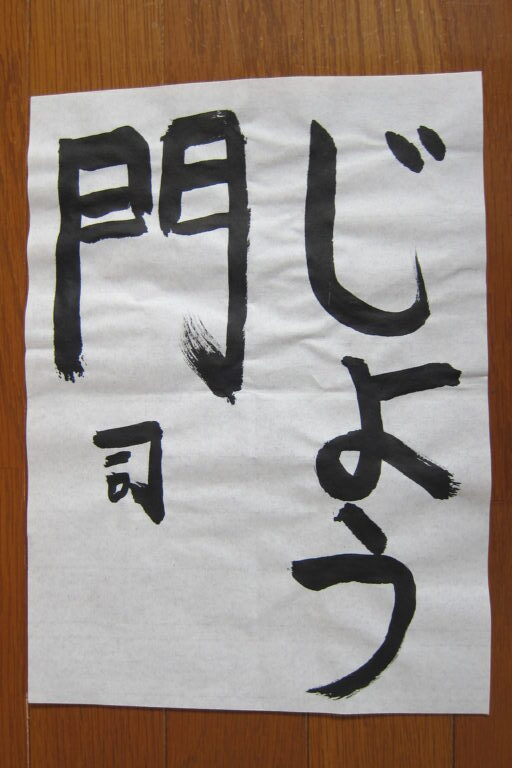 じよう
門
司